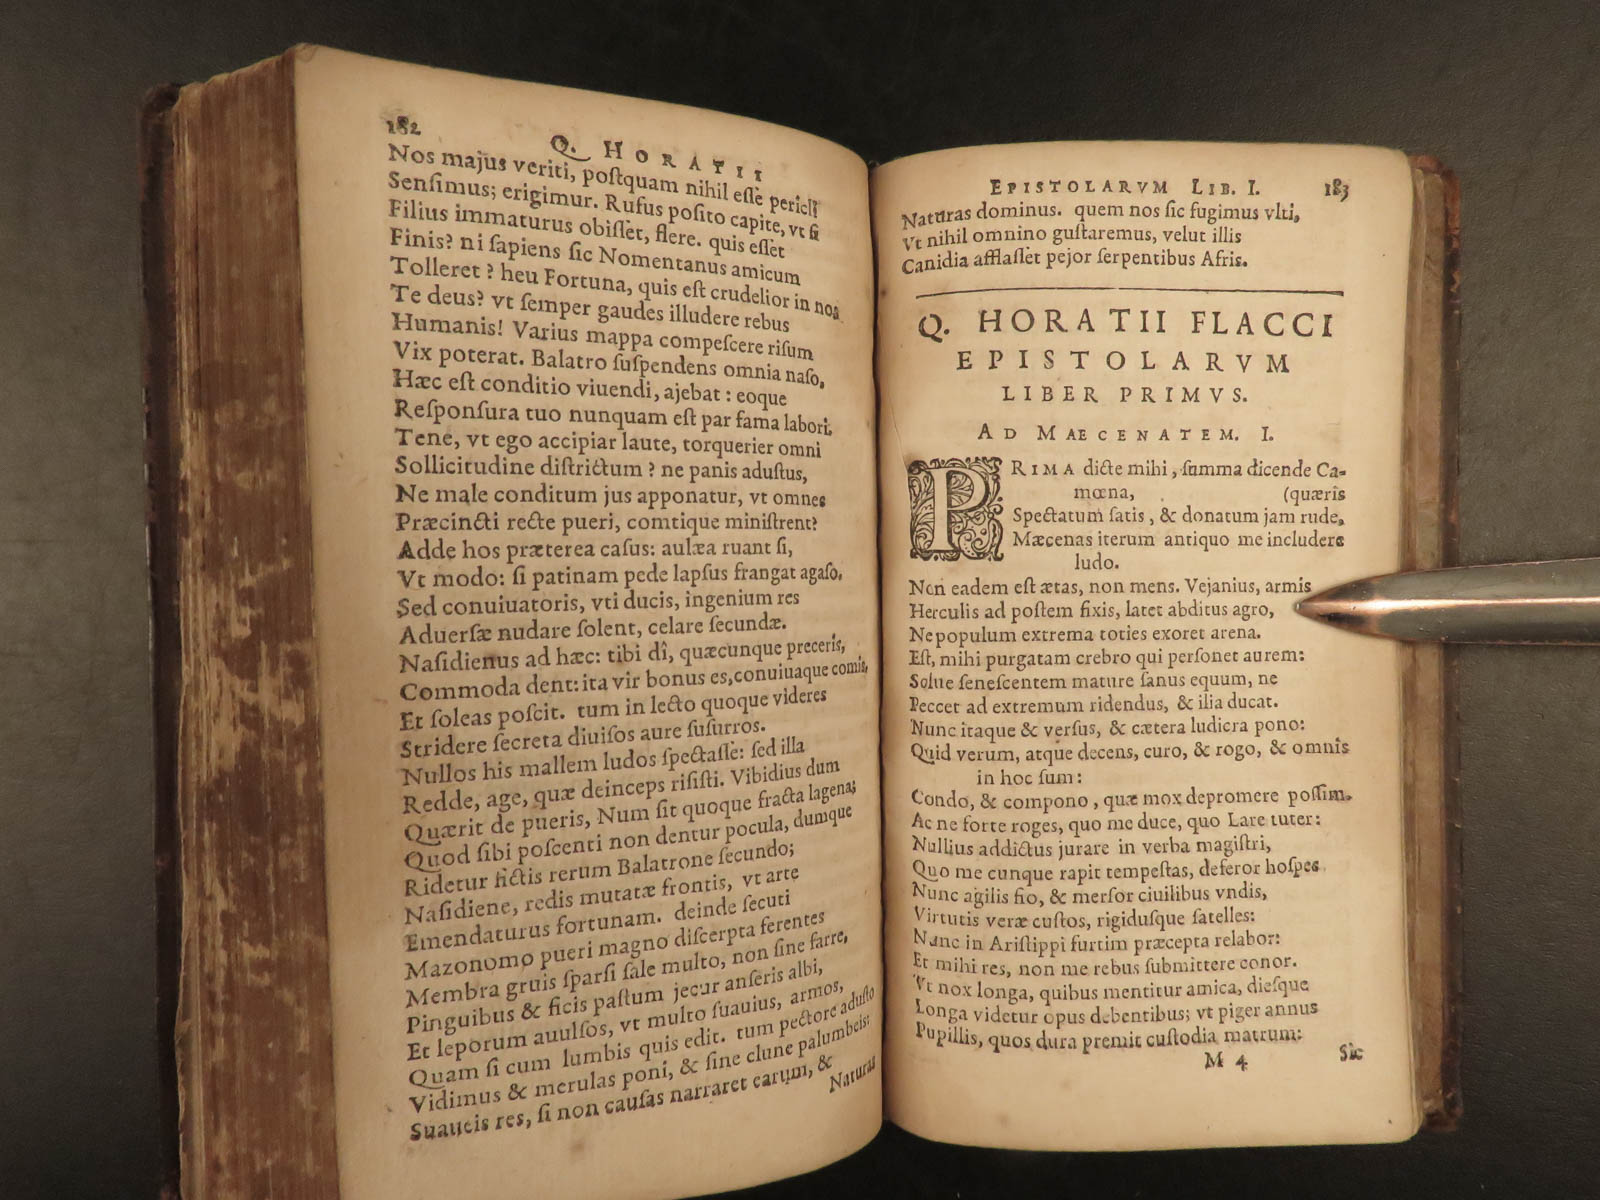 182
Q. HORATII
Nos majus veriti, poſtquam nihil eſſe pericli
Senſimus; erigimur. Rufus poſito capite, vt ſi
Filius immaturus obiſſet, flere. quis eſſet
Finis? ni ſapiens ſic Nomentanus amicum
Tolleret? heu Fortuna, quis eſt crudelior in nos
Te deus? vt ſemper gaudes illudere rebus
Humanis! Varius mappa compeſcere riſum
Vix poterat. Balatro ſuſpendens omnia naſo,
Hæc eſt conditio viuendi, ajebat: eoque
Reſponſura tuo nunquam eſt par fama labori.
Tene, vt ego accipiar laute, torquerier omni
Sollicitudine diſtrictum? ne panis aduſtus,
Ne male conditum jus apponatur, vt omnes
Præcincti recte pueri, comtique miniſtrent?
Adde hos præterea caſus: aulæa ruant ſi,
Vt modo: ſi patinam pede lapſus frangat agaſo.
Sed conuiuatoris, vti ducis, ingenium res
Aduerſæ nudare ſolent, celare ſecundæ.
Naſidienus ad hæc: tibi dî, quæcunque preceris,
Commoda dent: ita vir bonus es, conuiuaque comis,
Et ſoleas poſcit. tum in lecto quoque videres
Stridere ſecreta diuiſos aure ſuſurros.
Nullos his mallem ludos ſpectaſſe: ſed illa
Redde, age, quæ deinceps riſiſti. Vibidius dum
Quærit de pueris, Num ſit quoque fracta lagena;
Quod ſibi poſcenti non dentur pocula, dumque
Ridetur fictis rerum Balatrone ſecundo;
Naſidiene, redis mutatæ frontis, vt arte
Emendaturus fortunam. deinde ſecuti
Mazonomo pueri magno diſcerpta ferentes
Membra gruis ſparſi ſale multo, non ſine farre,
Pinguibus & ficis paſtum jecur anſeris albi,
Et leporum auulſos, vt multo ſuauius, armos,
Quam ſi cum lumbis quis edit. tum pectore aduſto
Vidimus & merulas poni, & ſine clune palumbeis:
Suaueis res, ſi non cauſas narraret earum, &
Naturas
EPISTOLARVM LIB. I. 183
Naturas dominus. quem nos ſic fugimus vlti,
Vt nihil omnino guſtaremus, velut illis
Canidia afflaſſet pejor ſerpentibus Afris.
Q. HORATII FLACCI
EPISTOLARVM
LIBER PRIMVS.
AD MAECENATEM. I.
PRIMA dicte mihi, ſumma dicende Ca-
mœna, (quæris
Spectatum ſatis, & donatum jam rude,
Mæcenas iterum antiquo me includere
ludo.
Non eadem eſt ætas, non mens. Vejanius, armis
Herculis ad poſtem fixis, latet abditus agro,
Ne populum extrema toties exoret arena.
Eſt, mihi purgatam crebro qui perſonet aurem:
Solue ſeneſcentem mature ſanus equum, ne
Peccet ad extremum ridendus, & ilia ducat.
Nunc itaque & verſus, & cætera ludicra pono:
Quid verum, atque decens, curo, & rogo, & omnis
in hoc ſum:
Condo, & compono, quæ mox depromere poſſim.
Ac ne forte roges, quo me duce, quo Lare tuter:
Nullius addictus jurare in verba magiſtri,
Quo me cunque rapit tempeſtas, deferor hoſpes.
Nunc agilis fio, & merſor ciuilibus vndis,
Virtutis veræ cuſtos, rigiduſque ſatelles:
Nunc in Ariſtippi furtim præcepta relabor:
Et mihi res, non me rebus ſubmittere conor.
Vt nox longa, quibus mentitur amica, dieſque
Longa videtur opus debentibus; vt piger annus
Pupillis, quos dura premit cuſtodia matrum:
M 4 Sic